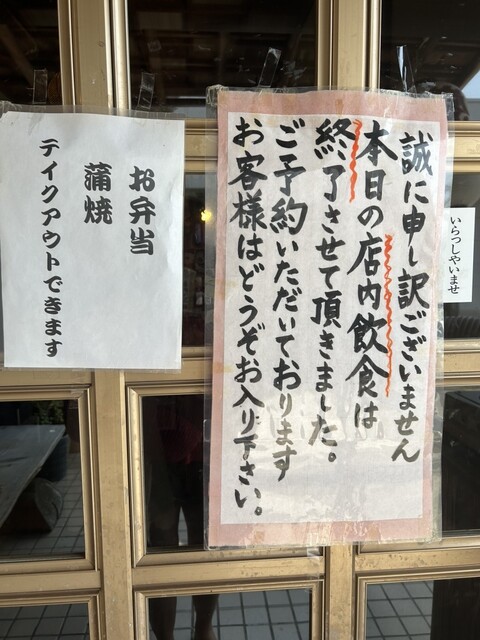 誠に申し訳ございません
本日の店内飲食は
終了させて頂きました。
ご予約いただいております
お客様はどうぞお入り下さい。
お弁当
蒲焼
テイクアウトできます
いらっしやいませ